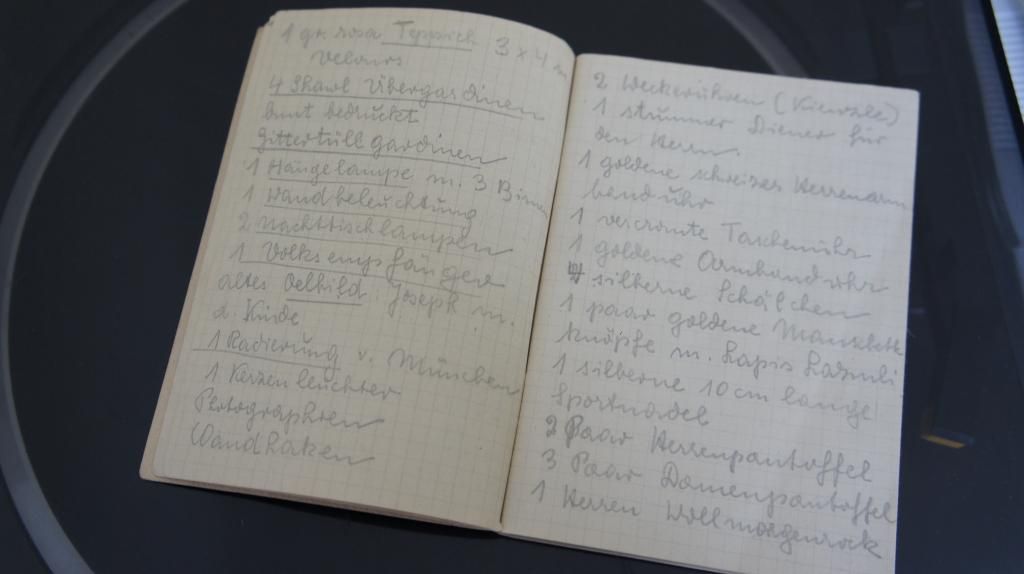 1 gr. rosa Teppich 3 x 4 m
Velours
4 Shawl Übergardinen
bunt bedruckt
Gittertüll gardinen
1 Hängelampe m. 3 Birnen
1 Wandbeleuchtung
2 Nachttischlampen
1 Volksempfänger
altes Oelbild Joseph m.
d. Kinde
1 Radierung v. München
1 Kerzenleuchter
Photographien
Wandhaken
2 Weckeruhren (Kienzle)
1 stummer Diener für
den Herrn.
1 goldene schweizer Herrenarm
banduhr
1 vercromte Taschenuhr
1 goldene Armbanduhr
silberne Schälchen
1 paar goldene Manschett
knöpfe m. Lapis Lazuli
1 silberne 10 cm lange
Sportnadel
2 Paar Herrenpantoffel
3 Paar Damenpantoffel
1 Herren Wollmorgenrock